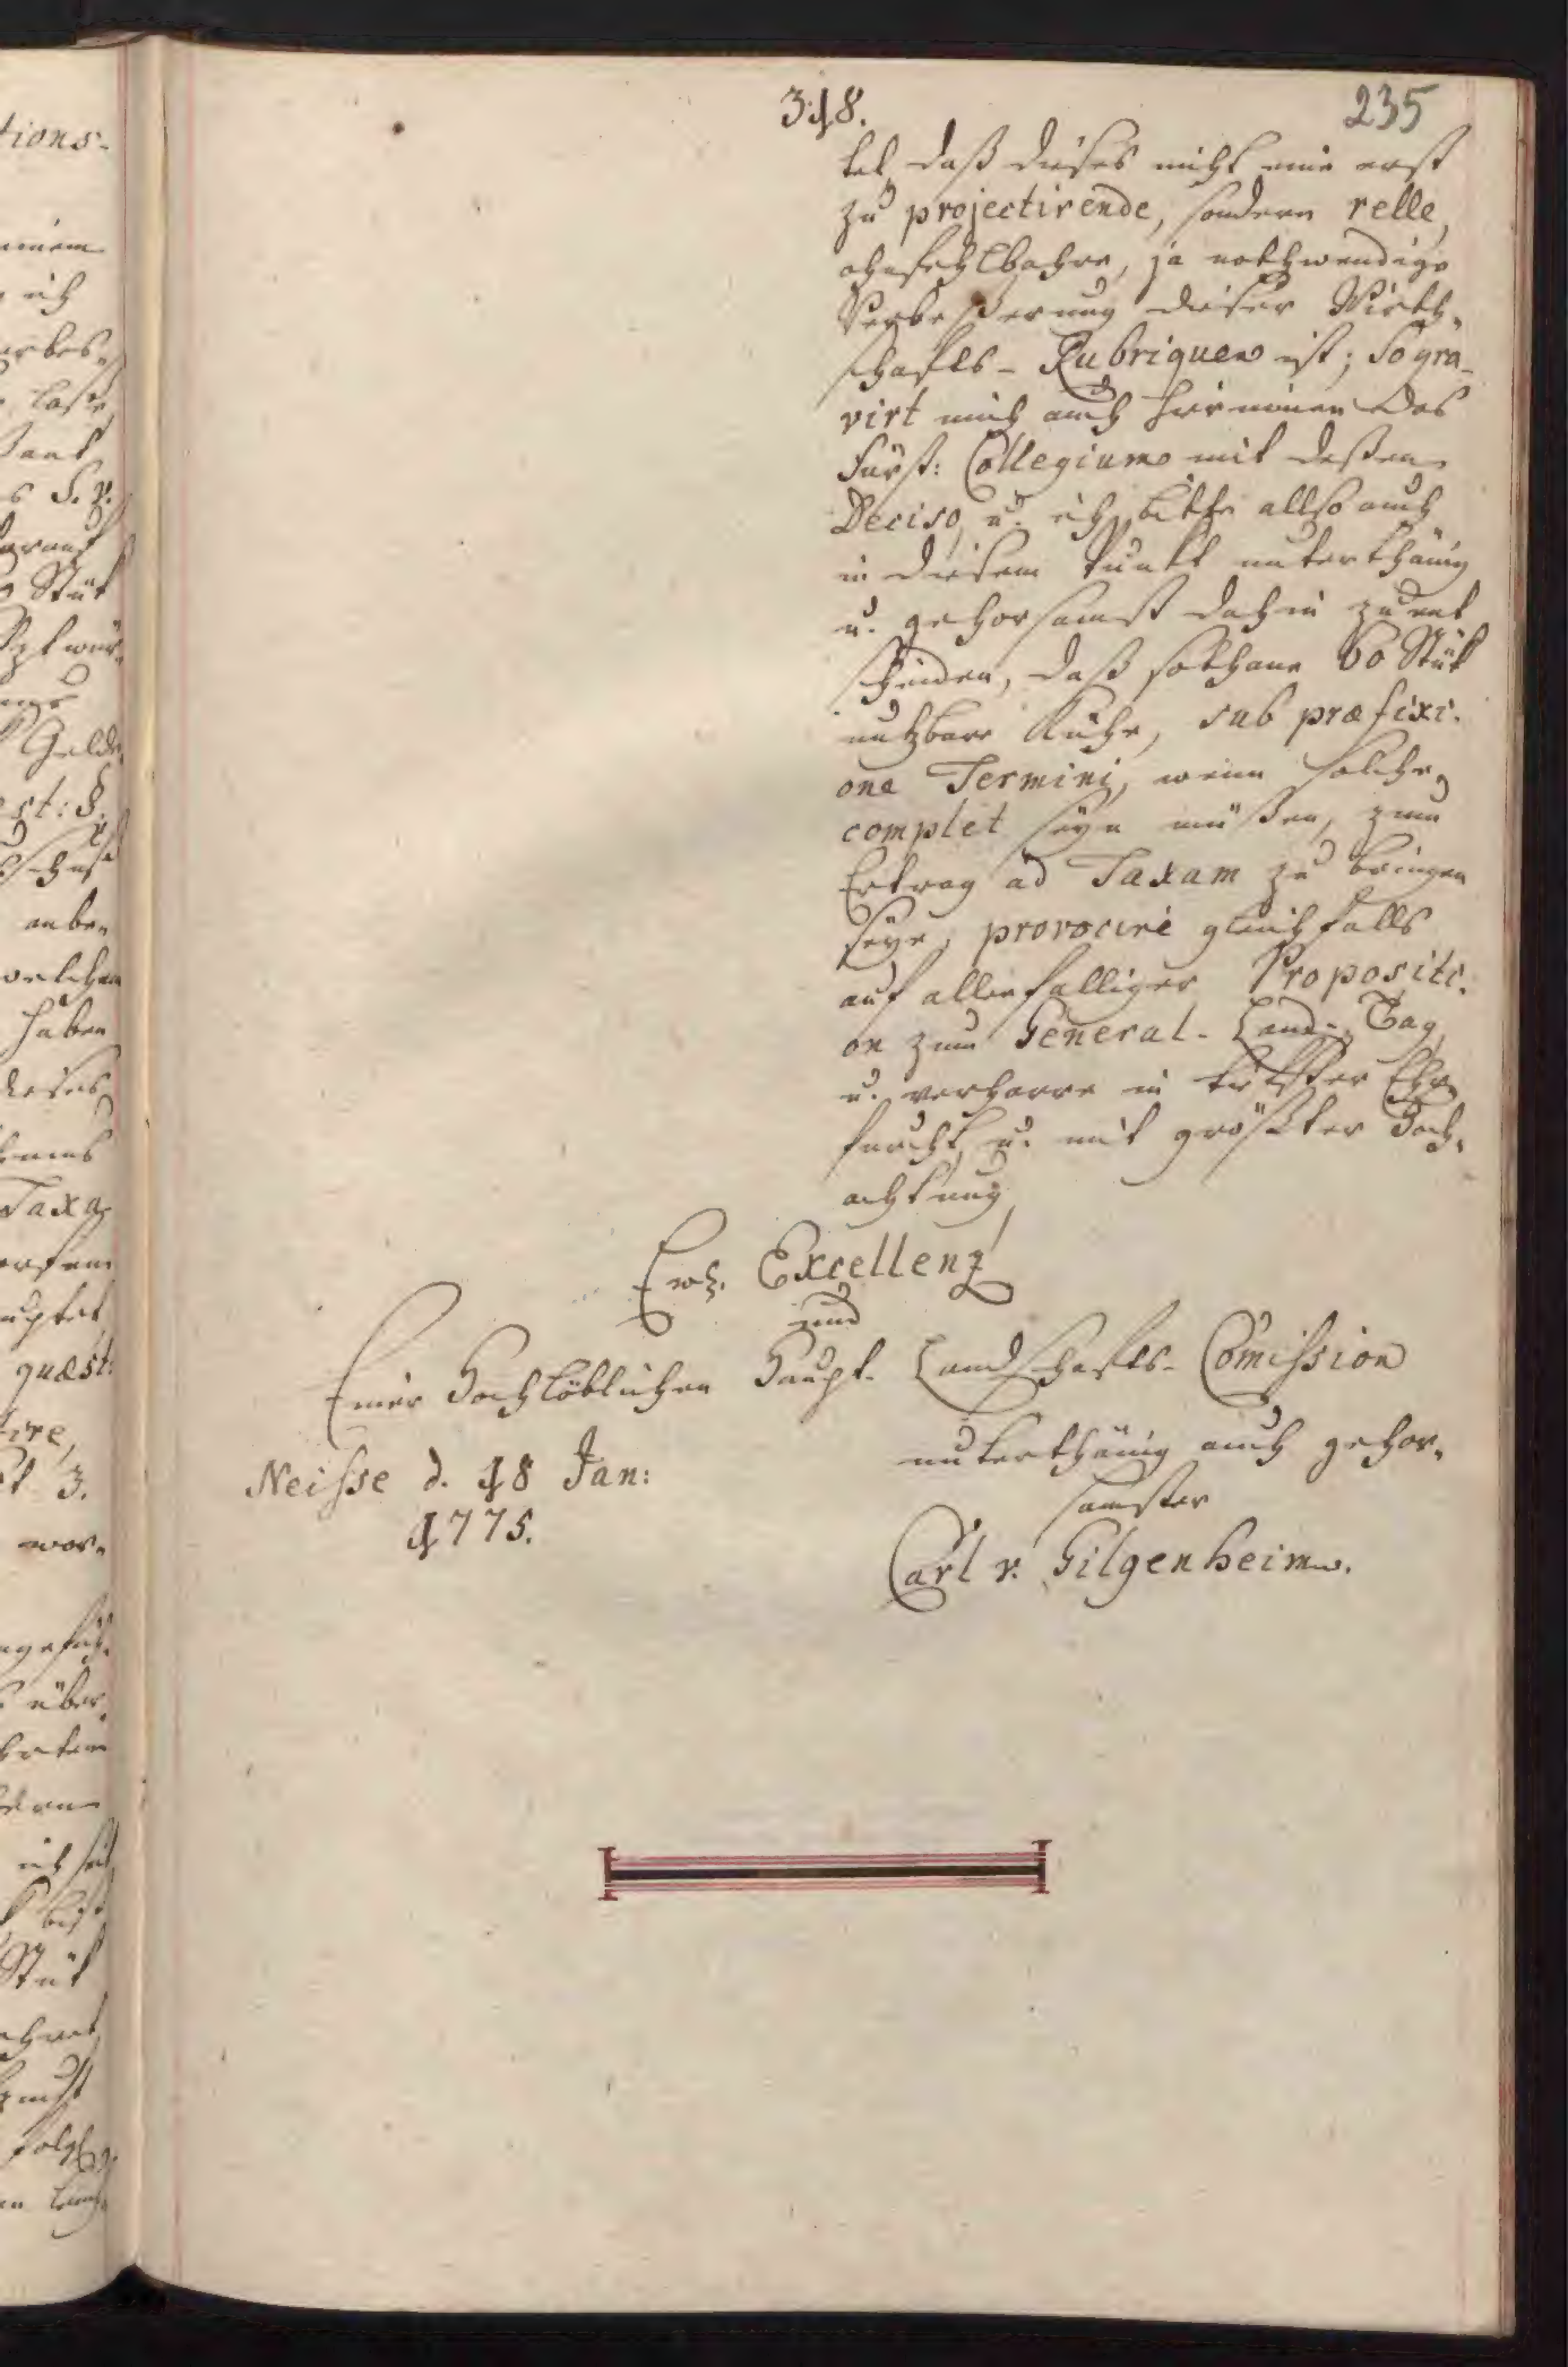 318.
235
tet, daß dieses nicht eine erst
zu projectirende, sondern relle,
ohnfehlbahre, ja nothwendige
Verbeßerung dieser Wirth,
schafts-Rubriquen ist; So gra-
virt mich auch hierinnen das
Fürst: Collegium mit deßen
Deciso, u. ich bitte allso auch
in diesem Punkt unterthänig
u. gehorsamst dahin zu ent
scheiden, daß sothane 60 Stük
nutzbare Kühe, sub præfixi.
one Termini, wenn solche,
complet seyn müßen, zum
Ertrag ad Taxam zu bringen
seye, provocire gleichfalls
auf allenfalliger Propositi.
on zum General-Land-Tag,
u. verharre in tiefster Ehr,
furcht, u. mit größter Hoch,
achtung,
Ewh. Excellenz
und
Einer Hochlöblichen Haupt-Landschafts-Comission
unterthänig auch gehor,
samster
Neisse d. 18 Jan:
1775.
Carl v. Gilgenheim.
tions-
ich
Stük
Geld
st: §.
anbe,
welchen
haben
dieses
Taxa
quæst:
tire,
3.
über,
Stük